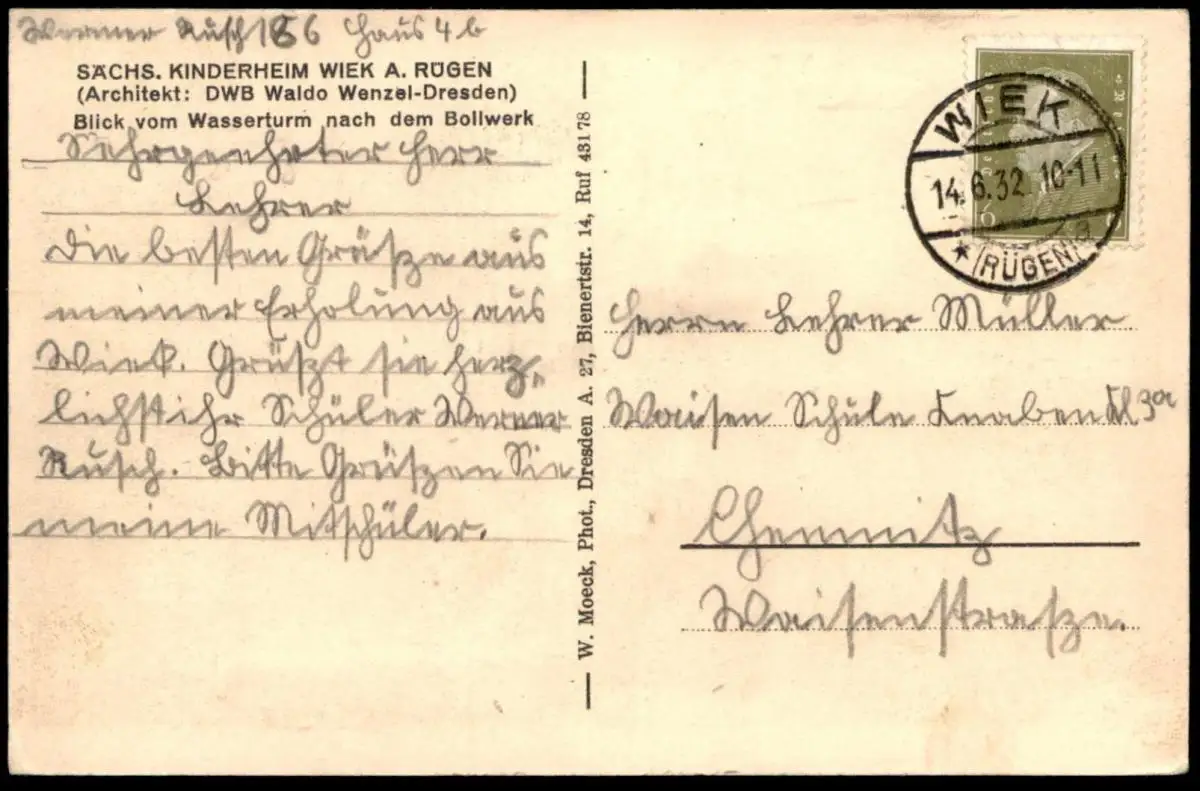 Werner Rusch 186 Haus 4 b
SÄCHS. KINDERHEIM WIEK A. RÜGEN
(Architekt: DWB Waldo Wenzel-Dresden)
Blick vom Wasserturm nach dem Bollwerk
Sehrgeehrter Herr
Lehrer
Die besten Grüsze aus
meiner Erholung aus
Wiek. Grüszt sie herz,
lichst ihr Schüler Werner
Rusch. Bitte Grüszen Sie
meine Mitschüler.
W. Moeck, Phot., Dresden A. 27, Bienertstr. 14, Ruf 431 78
WIEK
14.6.32. 10-11
(RÜGEN)
6
Herrn Lehrer Müller
Waisen Schule Knaben Kl 3a
Chemnitz
Waisenstrasze.